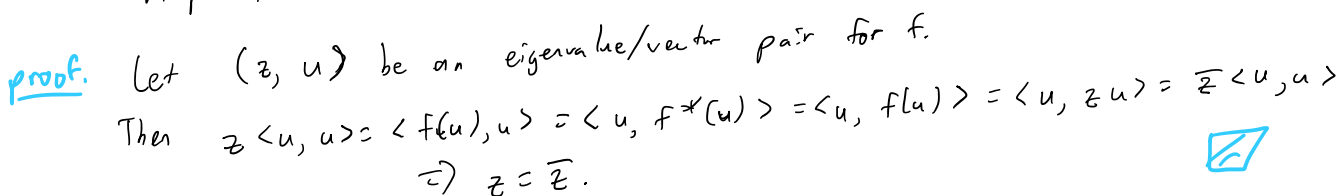 proof. Let (z, u) be an eigenvalue/vector pair for f.
Then z <u, u> = <f(u), u> = <u, f*(u)> = <u, f(u)> = <u, zu> = z̅ <u, u>
=> z = z̅.